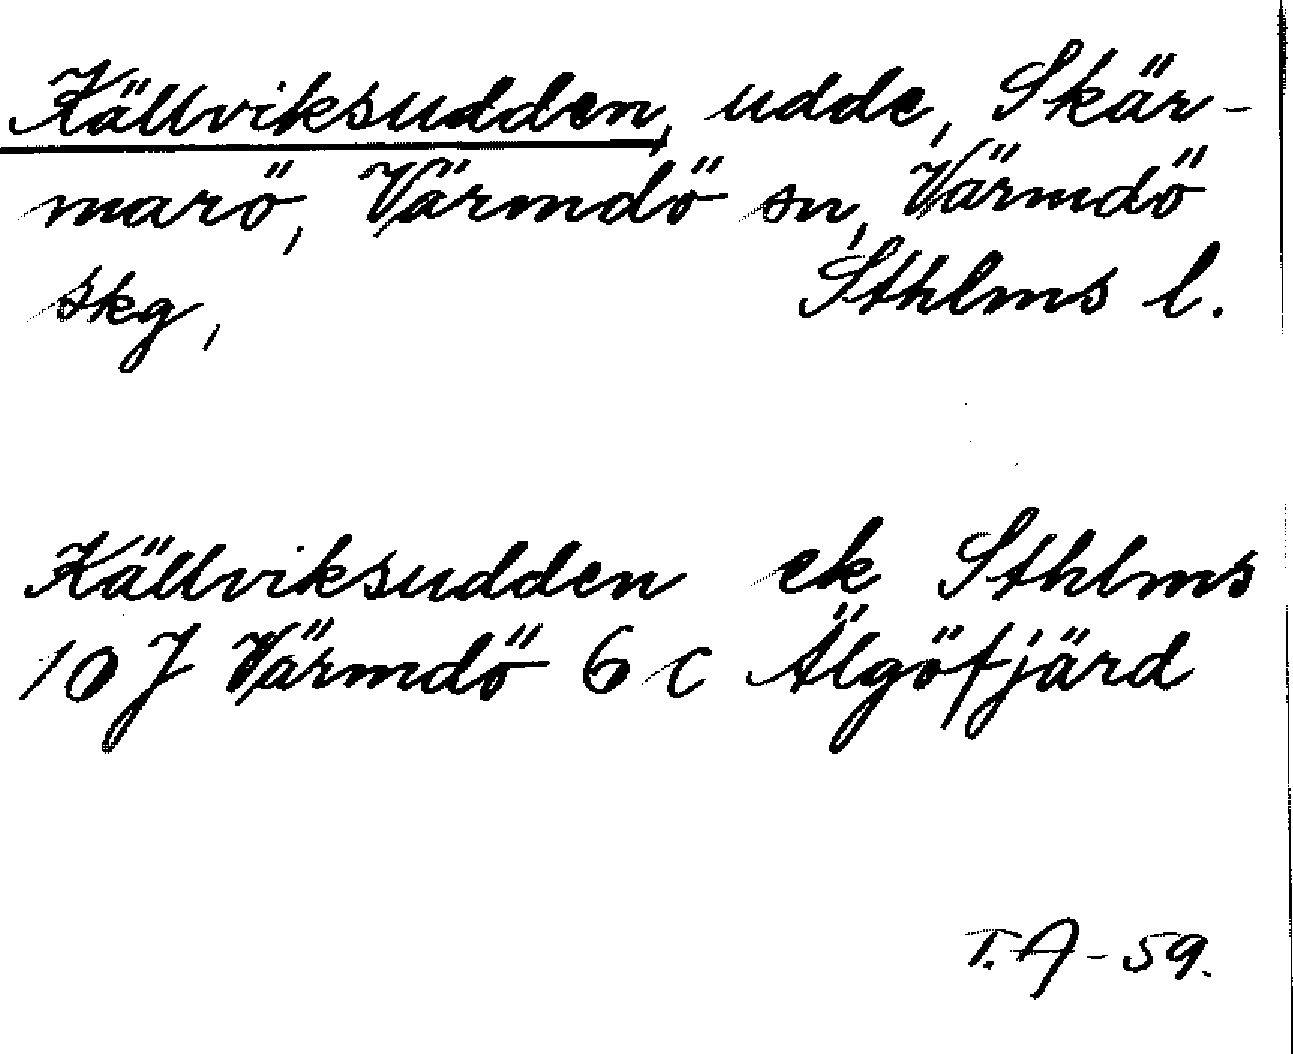 Källviksudden, udde, Skär-
marö, Värmdö sn, Värmdö
skg, Sthlms l.
Källviksudden ek Sthlms
10 J Värmdö 6 c Älgöfjärd
T.A - 59.